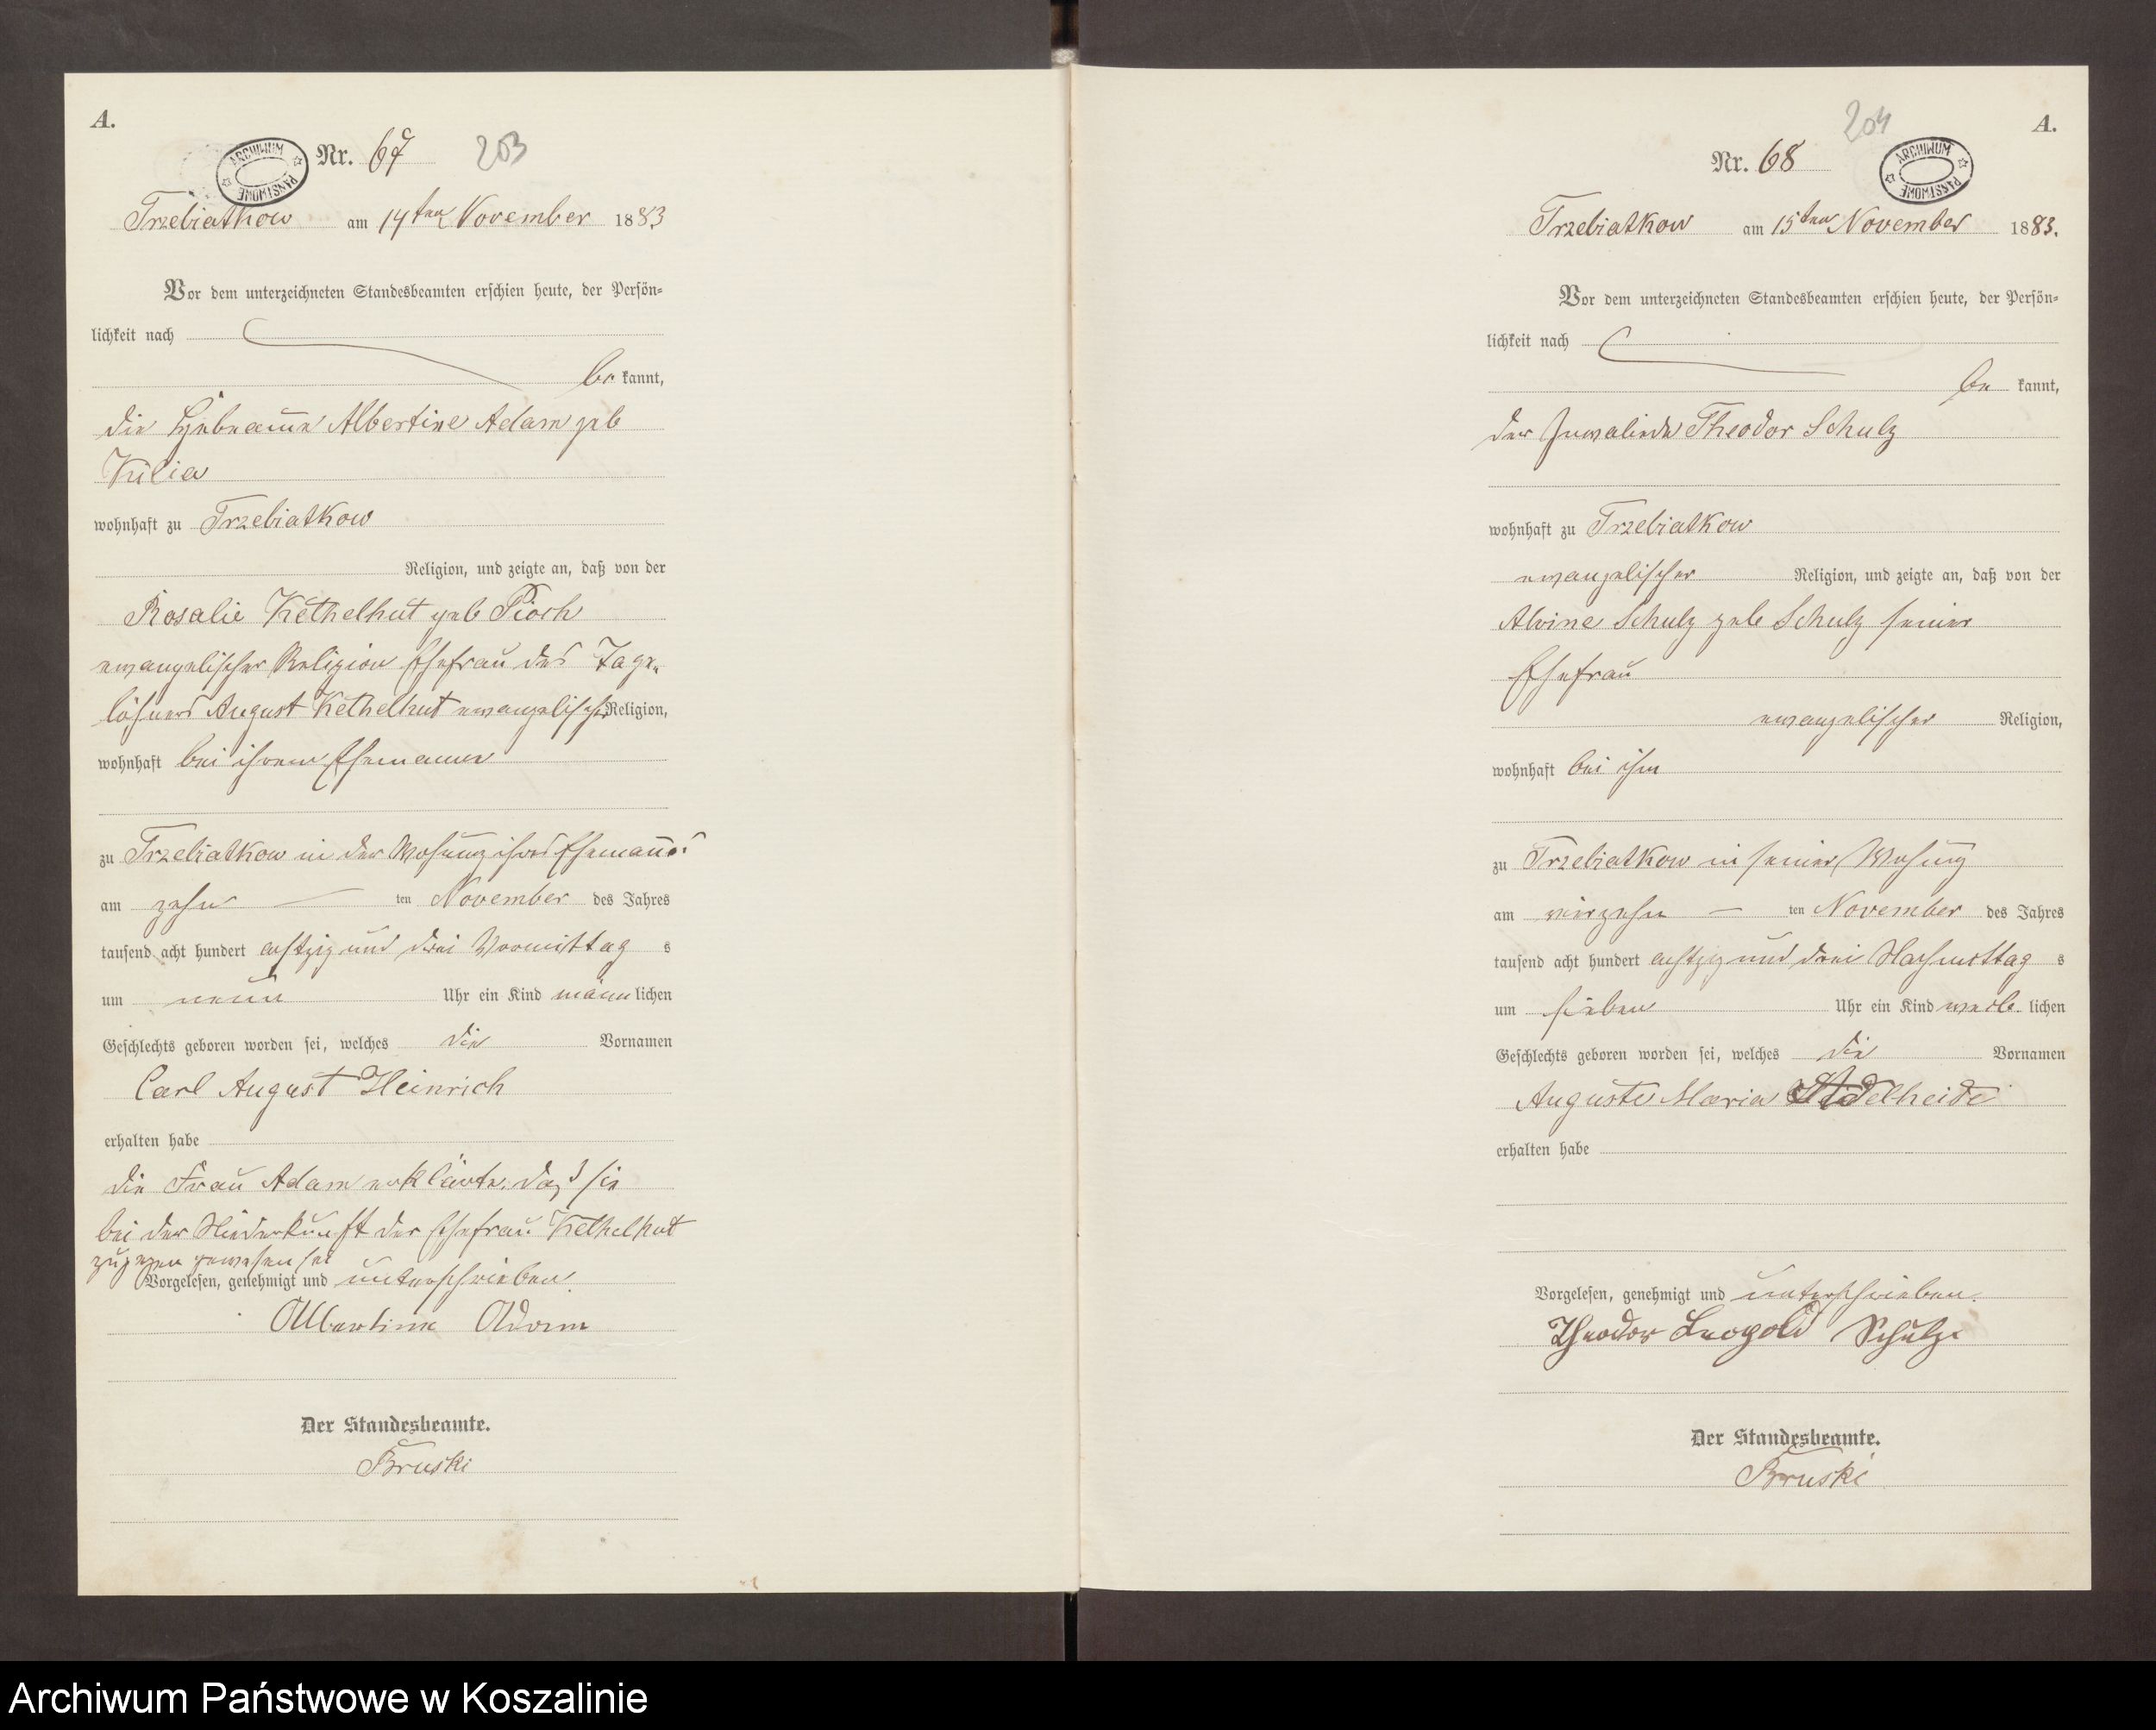 A.
Nr. 67
203
ARCHIWUM PAŃSTWOWE
Trzebiatkow am 14ten November 1883
Vor dem unterzeichneten Standesbeamten erschien heute, der Persön-
lichkeit nach
be kannt,
die Hebeamme Albertine Adam geb
Kilia
wohnhaft zu Trzebiatkow
Religion, und zeigte an, daß von der
Rosalie Kethelhut geb Pioch
ewangelischer Religion Ehefrau des Tage-
löhners August Kethelhut ewangelischer Religion,
wohnhaft bei ihrem Ehemanne
zu Trzebiatkow in der Wohung ihres Ehemannes
am zehn ten November des Jahres
tausend acht hundert achtzig und drei Vormittag s
um neun Uhr ein Kind männ lichen
Geschlechts geboren worden sei, welches die Vornamen
Carl August Heinrich
erhalten habe
die Frau Adam erklärte, daß sie
bei der Niederkunft der Ehefrau Kethelhut
zugegen gewesen sei
Vorgelesen, genehmigt und unterschrieben.
Albertine Adam
Der Standesbeamte.
Bruski
204
A.
Nr. 68
ARCHIWUM PAŃSTWOWE
Trzebiatkow am 15ten November 1883.
Vor dem unterzeichneten Standesbeamten erschien heute, der Persön-
lichkeit nach
be kannt,
der Inwalinde Theodor Schulz
wohnhaft zu Trzebiatkow
ewangelischer Religion, und zeigte an, daß von der
Alvine Schulz geb Schulz seiner
Ehefrau
ewangelischer Religion,
wohnhaft bei ihm
zu Trzebiatkow in seiner Wohung
am vierzehn ten November des Jahres
tausend acht hundert achtzig und drei Nachmittag s
um sieben Uhr ein Kind weib lichen
Geschlechts geboren worden sei, welches die Vornamen
Auguste Maria Adelheide
erhalten habe
Vorgelesen, genehmigt und unterschrieben.
Theodor Leopold Schulz
Der Standesbeamte.
Bruski
Archiwum Państwowe w Koszalinie